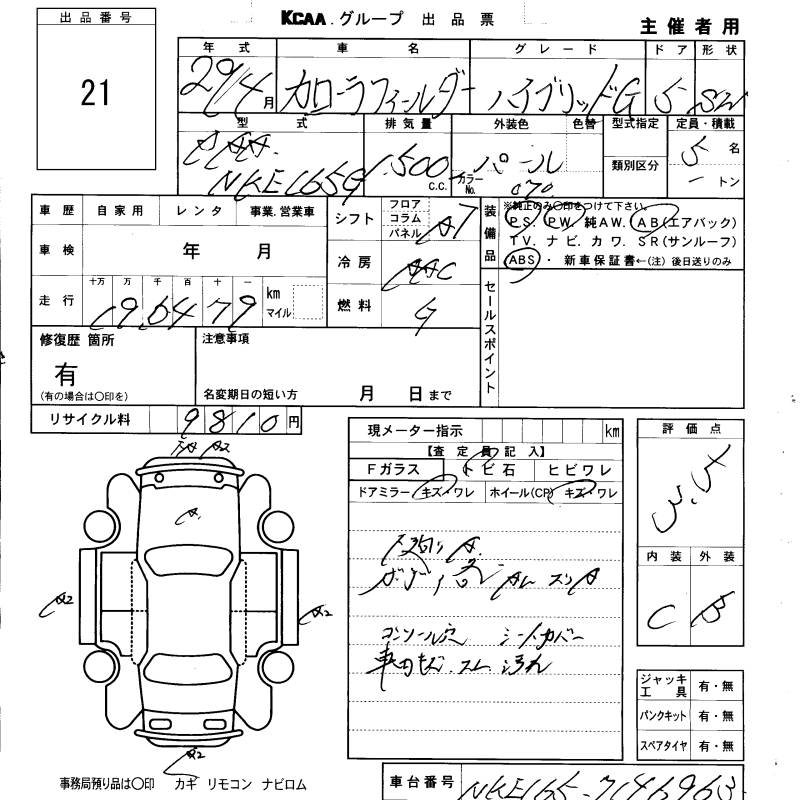 KCAA. グループ 出品票
主催者用
出品番号
21
年式 車名 グレード ドア 形状
29/4月 カローラフィールダー ハイブリッドG 5 SW
型式 排気量 外装色 色替 型式指定 定員・積載
DAA 1,500 C.C. パール 5名
NKE165G カラーNo. 070 類別区分 ートン
車歴 自家用 レンタ 事業.営業車
車検 年 月
走行 十万 万 千 百 十 一 km マイル
19,6479
シフト フロア コラム パネル AT
冷房 AAC
燃料 G
装備品 ※純正のみ〇印をつけて下さい。
PS. PW. 純AW. AB(エアバック)
TV. ナビ. カワ. SR(サンルーフ)
ABS ・ 新車保証書←(注) 後日送りのみ
セールスポイント
修復歴 箇所
有
(有の場合は〇印を)
注意事項
名変期日の短い方 月 日まで
リサイクル料 9810円
現メーター指示 km
【査定員記入】
Fガラス トビ石 ヒビワレ
ドアミラー キズ・ワレ ホイール(CP) キズ・ワレ
評価点
3.5
内装 外装
C B
A2
A2
A2
コンソール穴 シートカバー
ジャッキ工具 有・無
パンクキット 有・無
スペアタイヤ 有・無
事務局預り品は〇印 カギ リモコン ナビロム
車台番号 NKE165-7146963